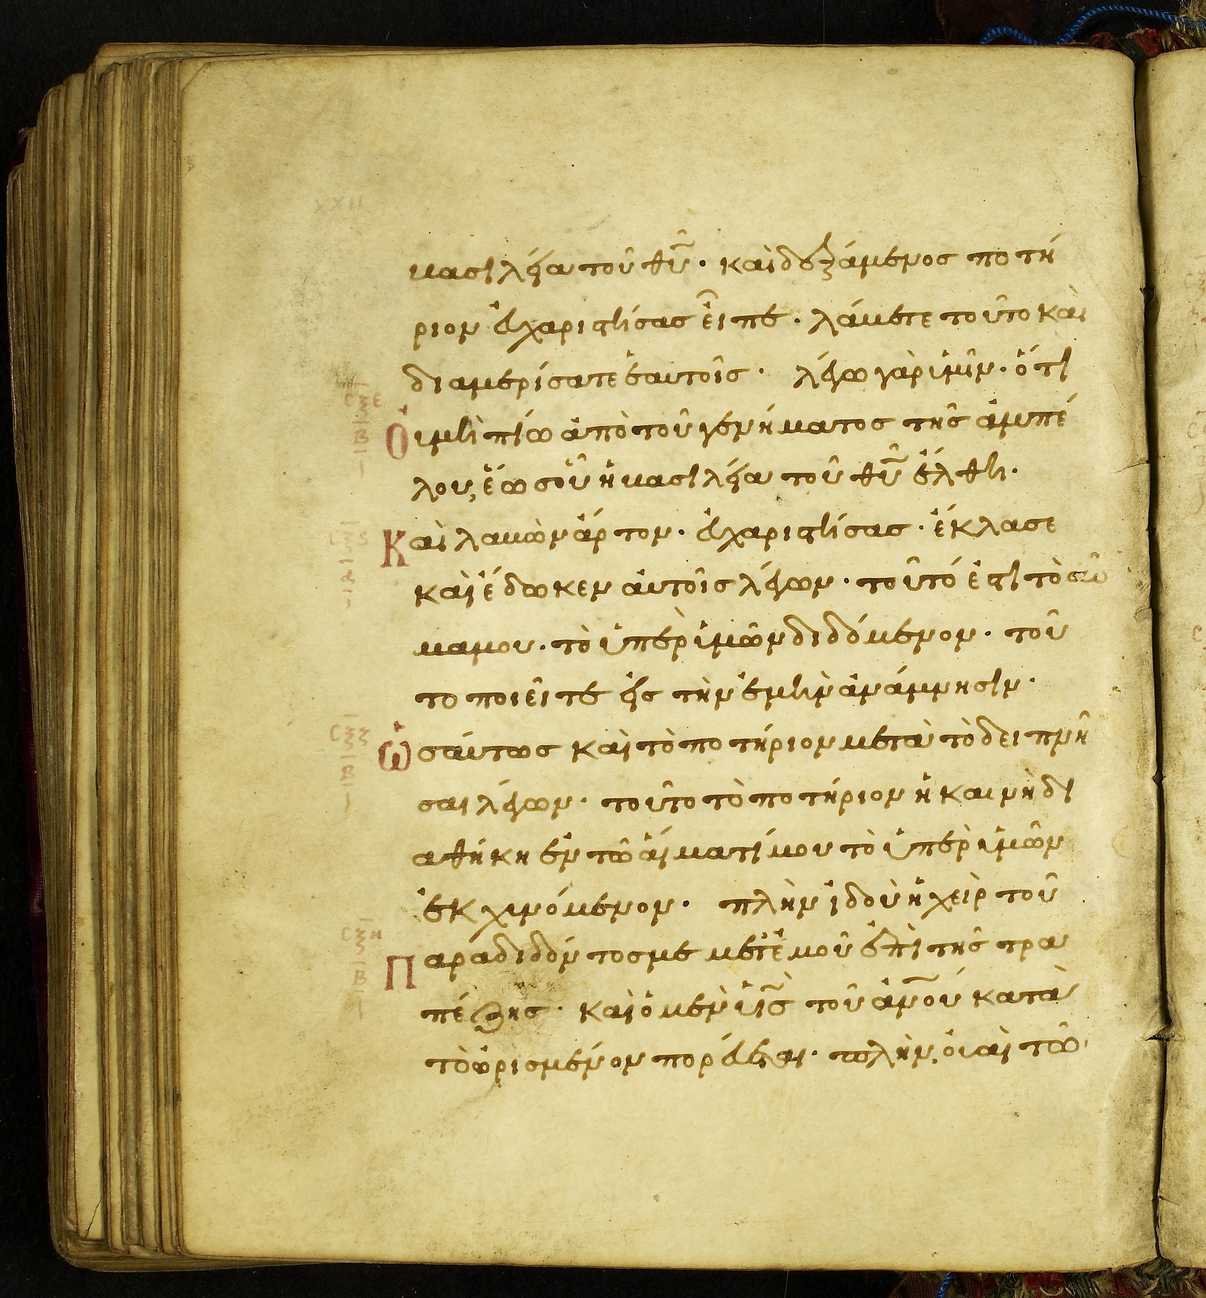 XXII
βασιλεία τοῦ θῦ· καὶ δεξάμενος ποτή
ριον εὐχαριστήσας εἶπε· λάβετε τοῦτο καὶ
διαμερίσατε ἑαυτοῖς· λέγω γὰρ ὑμῖν· ὅτι
CΞΕ
Β
Οὐ μὴ πίω ἀπὸ τοῦ γενήματος τῆς ἀμπέ
λου, ἕως οὗ ἡ βασιλεία τοῦ θῦ ἔλθη·
CΞϚ
Α
Καὶ λαβὼν ἄρτον· εὐχαριστήσας· ἔκλασε
καὶ ἔδωκεν αὐτοῖς λέγων· τοῦτό ἐστι τὸ σῶ
μα μου· τὸ ὑπὲρ ὑμῶν διδόμενον· τοῦ
το ποιεῖτε εἰς τὴν ἐμὴν ἀνάμνησιν·
CΞΖ
Β
Ὡσαύτως καὶ τὸ ποτήριον μετὰ τὸ δειπνῆ
σαι λέγων· τοῦτο τὸ ποτήριον ἡ καινὴ δι
αθήκη ἐν τῶ αἵματί μου τὸ ὑπὲρ ὑμῶν
ἐκχυνόμενον· πλὴν ἰδοὺ ἡ χεὶρ τοῦ
CΞΗ
Β
Παραδιδόντος με μετ' ἐμοῦ ἐπὶ τῆς τρα
πέζης· καὶ ὁ μὲν υἱς τοῦ ἀνου κατὰ
τὸ ὡρισμένον πορεύεται· πλὴν οὐαὶ τῶ